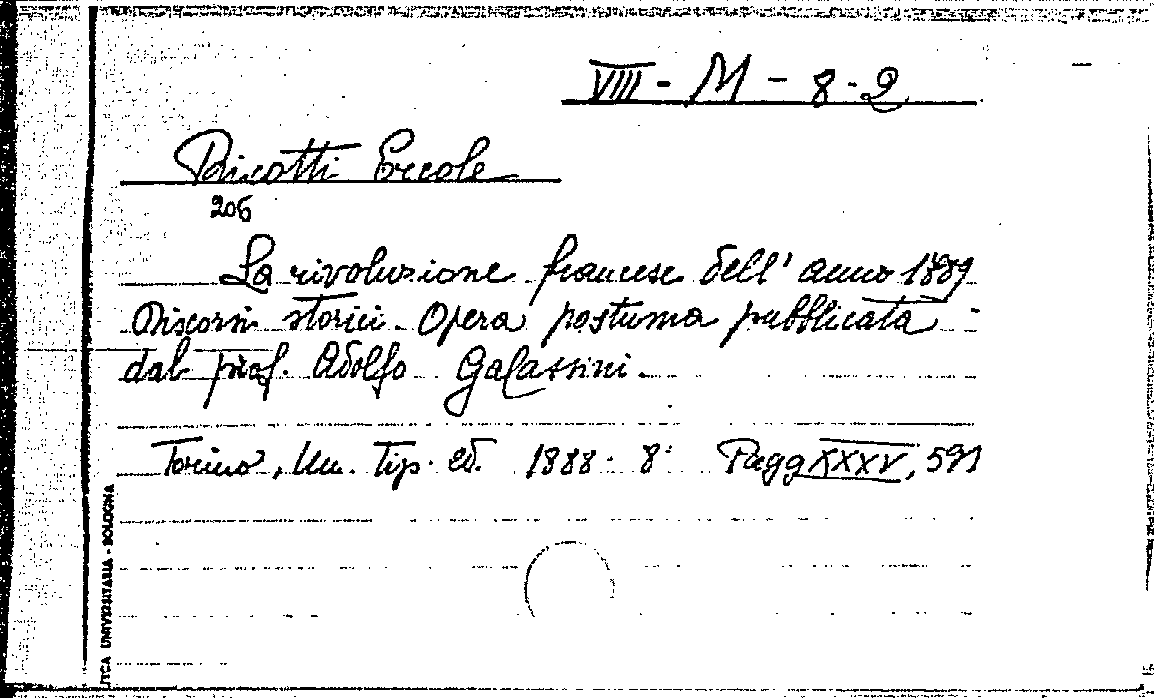 VIII - M - 8 - 2
Ricotti Ercole
206
La rivoluzione francese dell' anno 1889
Discorsi storici. Opera postuma pubblicata
dal prof. Adolfo Galassini.
Torino, Un. Tip. ed. 1888. 8° Pagg XXXV, 591
UNIVERSITARIA - BOLOGNA